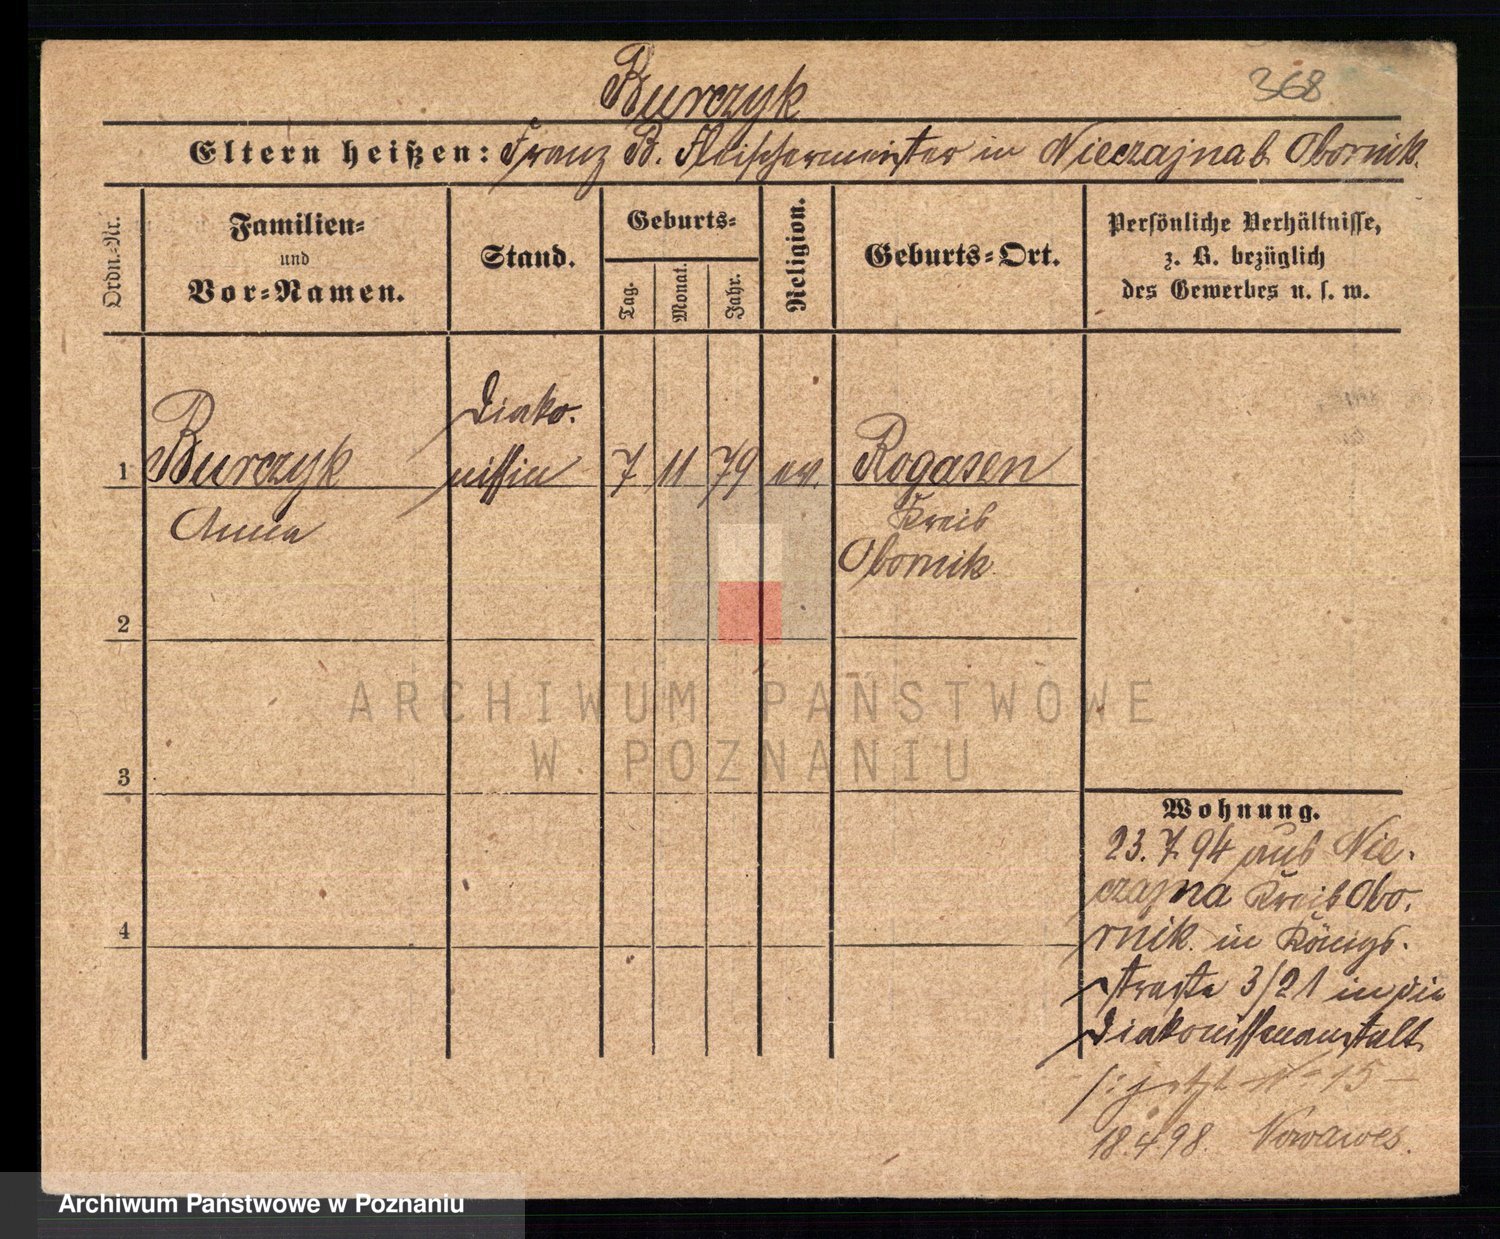 Burczyk
368
Eltern heißen: Franz B. Fleischermeister in Nieczajna b. Obornik.
Ordn.-Nr.
Familien-
und
Vor-Namen.
Stand.
Geburts-
Tag.
Monat.
Jahr.
Religion.
Geburts-Ort.
Persönliche Verhältnisse,
z. B. bezüglich
des Gewerbes u. s. w.
Diako-
1 Burczyk nissin 7 11 79 ev. Rogasen
Anna Kreis
Obornik
2
3
4
Wohnung.
23.7.94 aus Nie-
czajna Kreis Obo-
rnik in Königs-
straße 3/21 in die
Diakonissenanstalt
/: jetzt N° 15
18.4.98. Nowawes.
ARCHIWUM PAŃSTWOWE
W POZNANIU
Archiwum Państwowe w Poznaniu